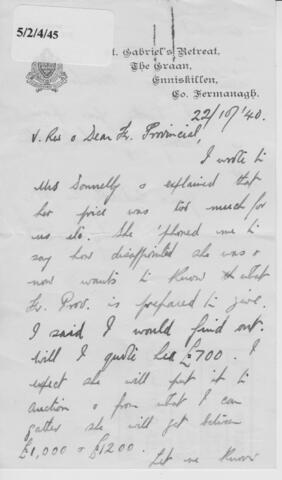 5/2/4/45
t. Gabriel's Retreat,
The Graan,
Enniskillen,
Co. Fermanagh.
22/10/'40.
V. Rev & Dear Fr. Provincial,
I wrote to
Mrs Donnelly & explained that
her price was too much for
us etc. She 'phoned me to
say how disappointed she was &
now wants to know what
Fr. Prov. is prepared to give.
I said I would find out.
Will I quote her £700. I
expect she will put it to
auction & from what I can
gather she will get between
£1,000 & £1200.
Let me know